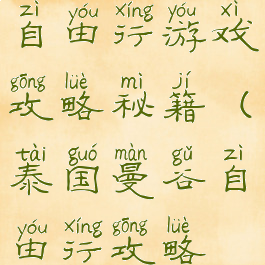 zì yóu xíng yóu xì
自由行游戏
gōng lüè mì jí
攻略秘籍（
tài guó màn gǔ zì
泰国曼谷自
yóu xíng gōng lüè
由行攻略